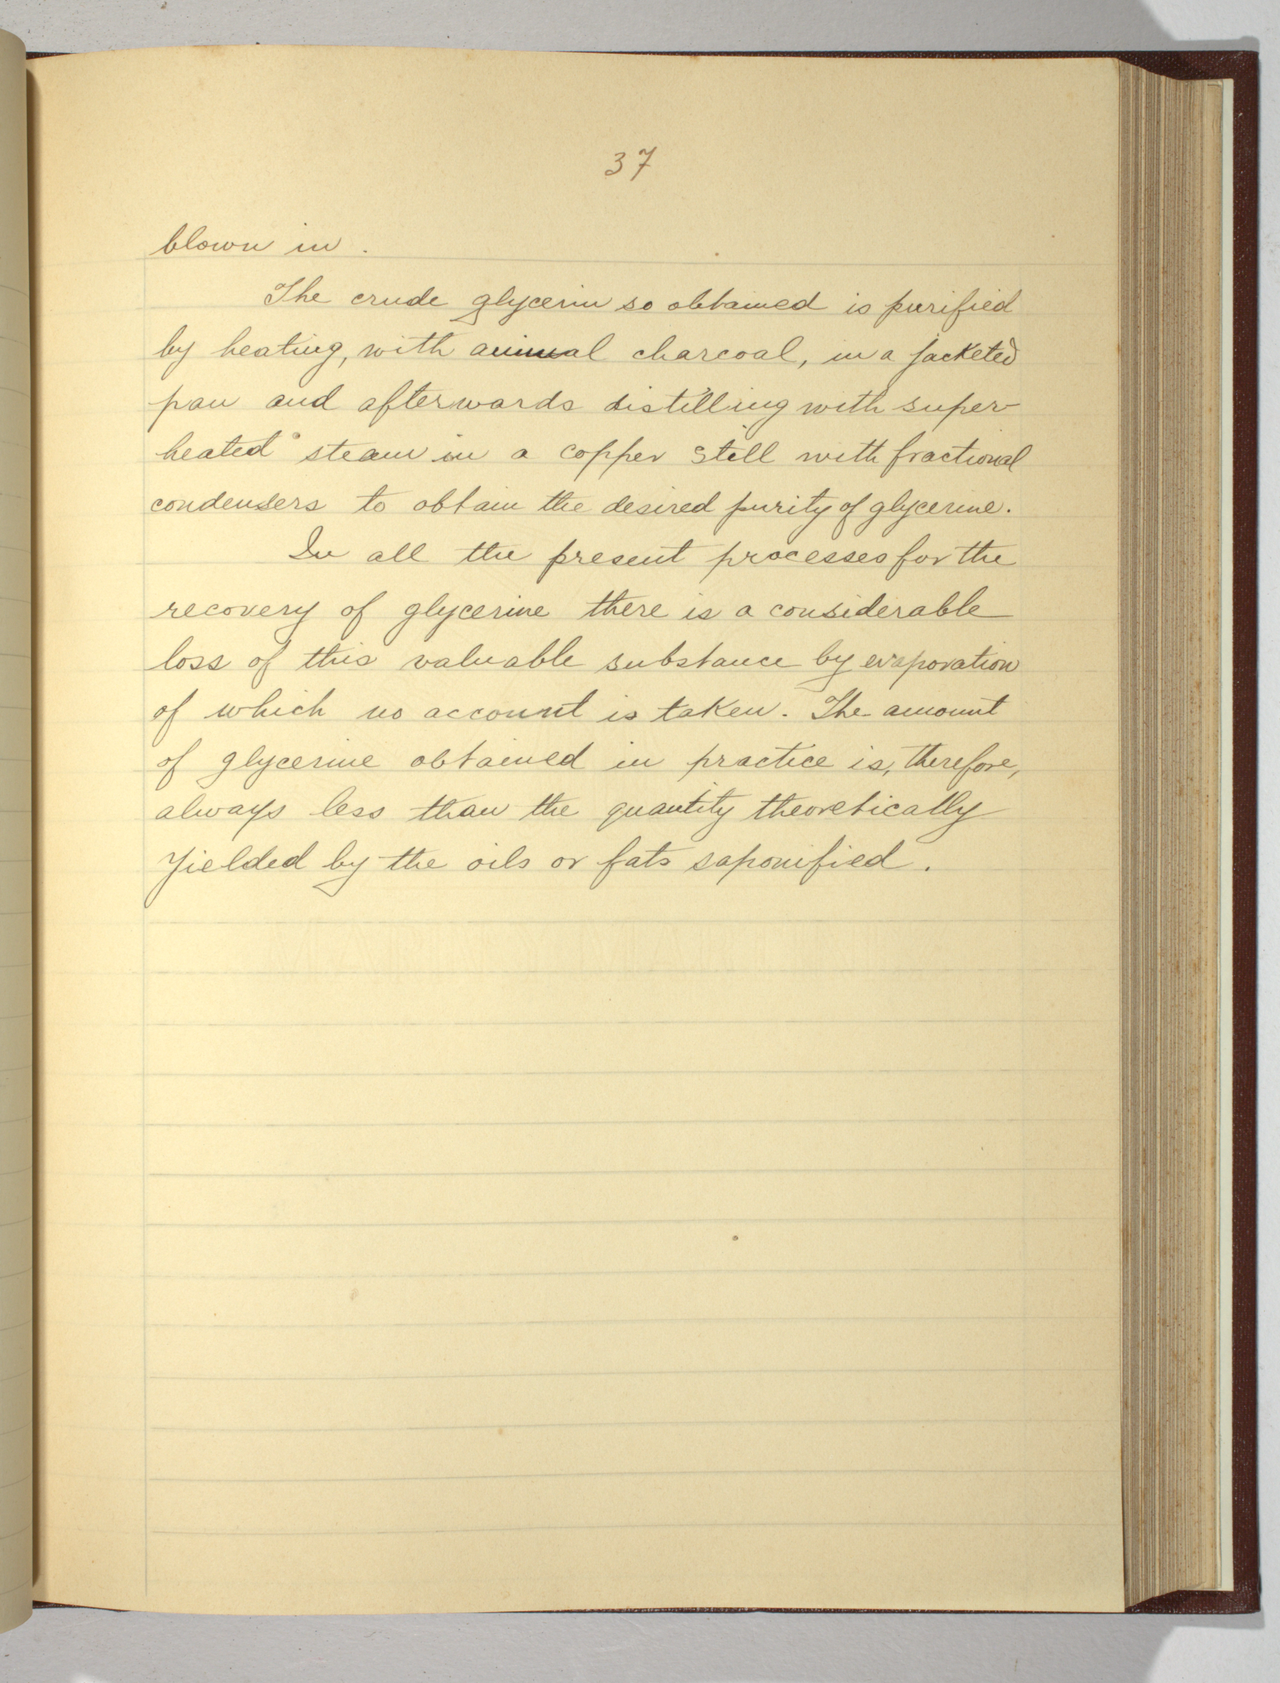 37
blown in.
The crude glycerin so obtained is purified
by heating, with animal charcoal, in a jacketed
pan and afterwards distilling with super-
heated steam in a copper still with fractional
condensers to obtain the desired purity of glycerine.
In all the present processes for the
recovery of glycerine there is a considerable
loss of this valuable substance by evaporation
of which no account is taken. The amount
of glycerine obtained in practice is, therefore,
always less than the quantity theoretically
yielded by the oils or fats saponified.